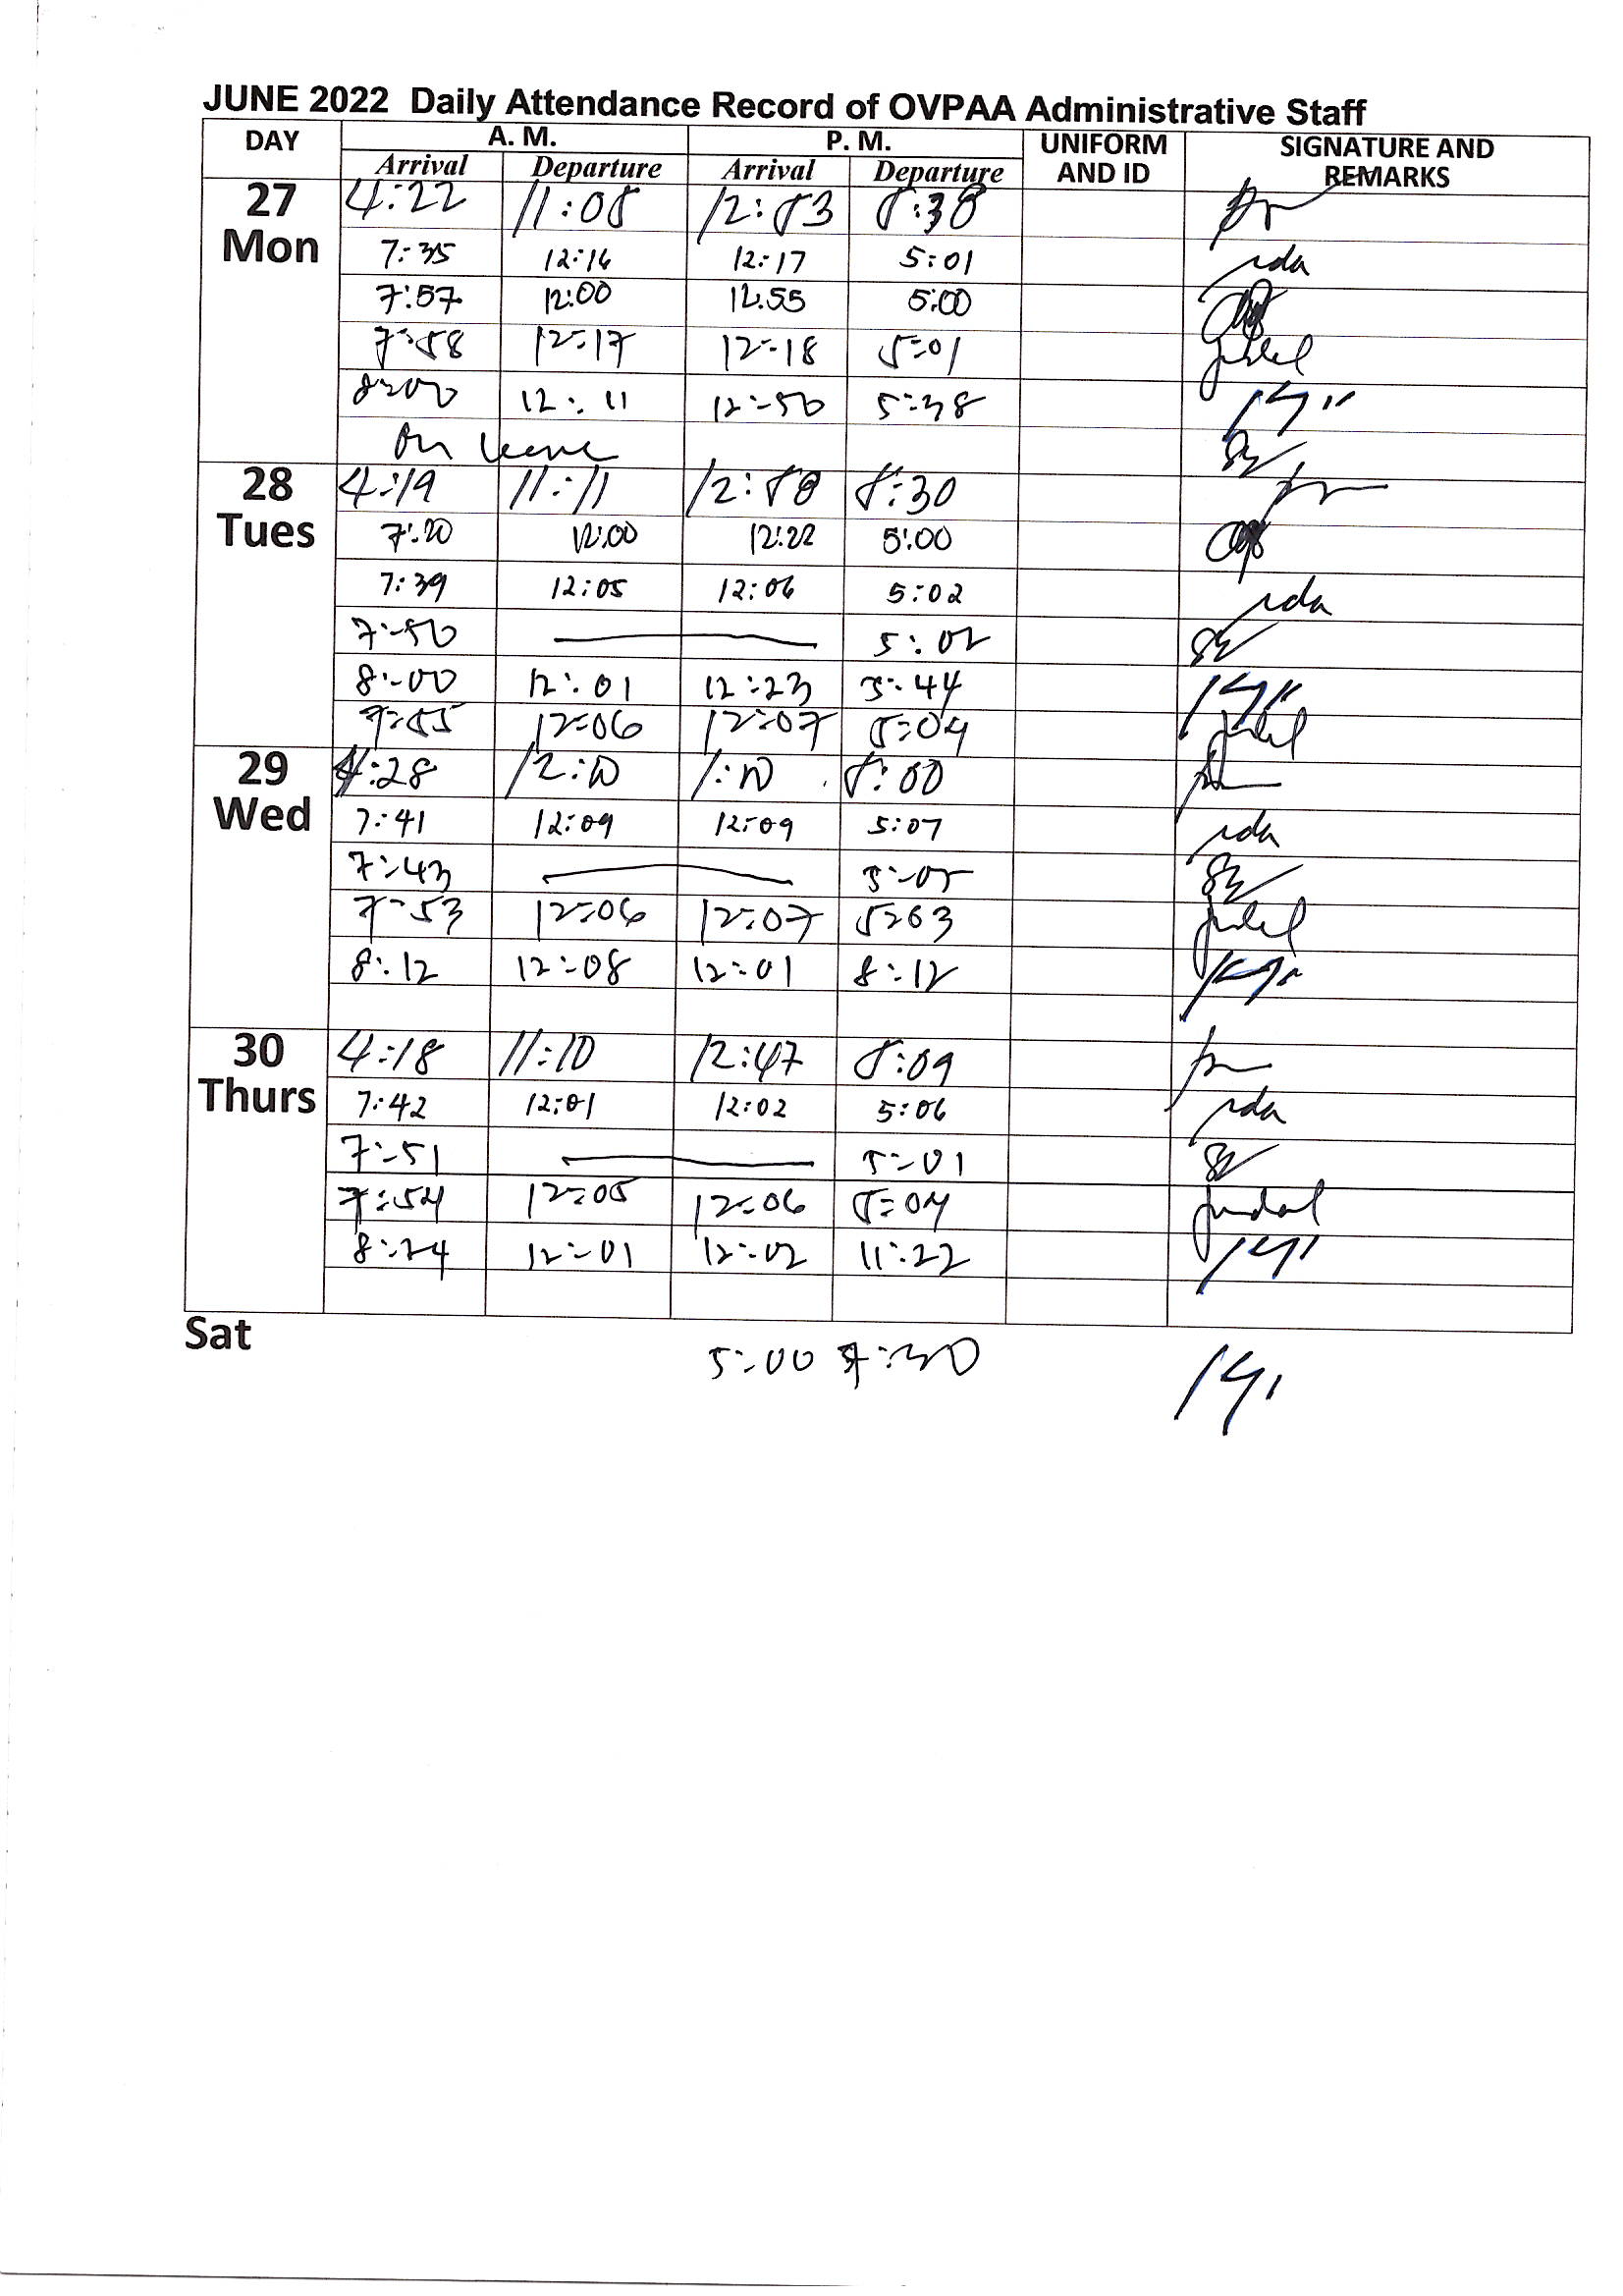 JUNE 2022 Daily Attendance Record of OVPAA Administrative Staff
DAY A. M. P. M. UNIFORM AND ID SIGNATURE AND REMARKS
Arrival Departure Arrival Departure
27 Mon
4:22 11:08 12:53 5:38
7:35 12:16 12:17 5:01 rda
7:57 12:00 12:55 5:00
7:58 12:17 12:18 5:01
8:00 12:11 12:50 5:38
On leave
28 Tues
4:19 11:11 12:58 5:30
7:20 12:00 12:22 5:00
7:39 12:05 12:06 5:02 rda
7:50 5:02
8:00 12:01 12:23 5:44
7:55 12:06 12:07 5:04
29 Wed
4:28 12:10 1:10 5:00
7:41 12:09 12:09 5:07 rda
7:43 5:05
7:53 12:06 12:07 5:03
8:12 12:08 12:01 8:12
30 Thurs
4:18 11:10 12:47 5:09
7:42 12:01 12:02 5:06 rda
7:51 5:01
7:54 12:05 12:06 5:04
8:24 12:01 12:02 11:22
Sat 5:00